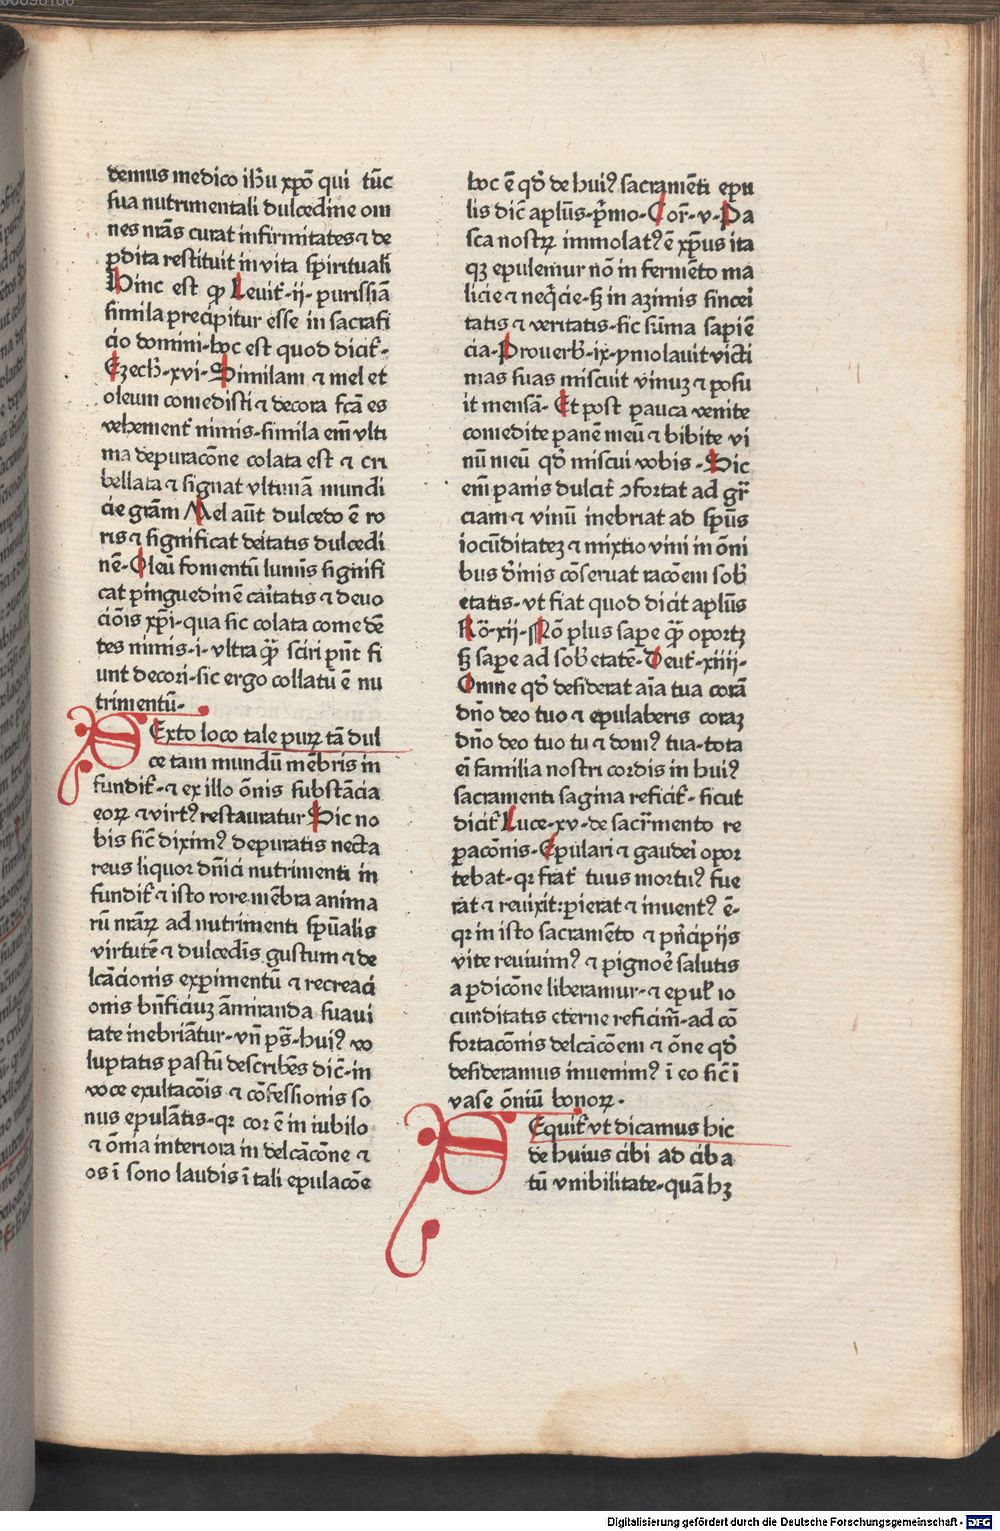 demus medico ihu xpō qui tūc
sua nutrimentali dulcedine om
nes nrās curat infirmitates ⁊ de
pdita restituit in vita spirituali
Hinc est qꝫ Leuit̄·ii· purissiā
simila precipitur esse in sacrafi
cio domini·hoc est quod dicit̄·
Ezech̄·xvi·Similam ⁊ mel et
oleum comedisti ⁊ decora fcā es
vehement̄ nimis·simila em̄ vlti
ma depuracōne colata est ⁊ cri
bellata ⁊ signat vltimā mundi
cie grām Mel aūt dulcedo ē ro
ris ⁊ significat deitatis dulcedi
nē·Oleū fomentū lumīs signifi
cat pinguedinē caritatis ⁊ deuo
ciōis xpī·qua sic colata comedē
tes nimis·i·vltra qȝ̄ sciri pn̄t fi
unt decori·sic ergo collatū ē nu
trimentū·
SExto loco tale puꝝ tā dul
ce tam mundū mēbris in
fundit̄·⁊ ex illo ōnis substācia
eoꝝ ⁊ virtꝰ restauratur Sic no
bis sic̄ diximꝰ depuratis necta
reus liquor dn̄ici nutrimenti in
fundit̄ ⁊ isto rore mēbra anima
rū nrāꝝ ad nutrimenti spūalis
virtutē ⁊ dulcedīs gustum ⁊ de
lcācionis experimentū ⁊ recreaci
onis bn̄ficiuȝ āmiranda suaui
tate inebriātur·vn̄ ps̄·huiꝰ vo
luptatis pastū describēs dic̄·in
voce exultacōis ⁊ cōfessionis so
nus epulātis·qr cor ē in iubilo
⁊ ōmia interiora in delcācōne ⁊
os ī sono laudis ī tali epulacōe
hoc ē qd̄ de huiꝰ sacramēti epu
lis dic̄ aplūs·p̄mo·Cor̄·v·Pa
sca nostꝝ immolatꝰ ē xp̄us ita
qȝ epulemur nō in fermēto ma
licie ⁊ neq̄cie·sȝ in azimis sincei
tatis ⁊ veritatis·sic sūma sapiē
cia·Prouerb̄·ix·ymolauit victi
mas suas miscuit vinuȝ ⁊ posu
it mensā·Et post pauca venite
comedite panē meū ⁊ bibite vi
nū meū qd̄ miscui vobis·Sic
em̄ panis dulcit̄ ꝯfortat ad gr̄
ciam ⁊ vinū inebriat ad spūs
iocūditateȝ ⁊ mixtio vini in ōni
bus dīnis cōseruat racōem sob̄
etatis·vt fiat quod dicit aplūs
Rō·xii·Nō plus sape qȝ̄ oportȝ
sȝ sape ad sob̄etatē·Deut̄·xiiii·
Omne qd̄ desiderat aīa tua corā
dn̄o deo tuo ⁊ epulaberis coraȝ
dn̄o deo tuo tu ⁊ domꝰ tua·tota
eī familia nostri cordis in huiꝰ
sacramenti sagina reficit̄·sicut
dicit̄ Luce·xv·de sacr̄mento re
pacōnis·Epulari ⁊ gaudei opor
tebat·qr frat̄ tuus mortuꝰ fue
rat ⁊ reuixit:pierat ⁊ inuentꝰ ē·
qr in isto sacramēto ⁊ pn̄cipijs
vite reuiuimꝰ ⁊ pignoē salutis
a pdicōne liberamur·⁊ epul̄ io
cunditatis eterne reficim̄·ad cō
fortacōnis delcācōem ⁊ ōne qd̄
desideramus inuenimꝰ ī eo sic̄ ī
vase ōniū bonoꝝ·
SEquit̄ vt dicamus hic
de huius cibi ad ciba
tū vnibilitate·quā hȝ
Digitalisierung gefördert durch die Deutsche Forschungsgemeinschaft - DFG